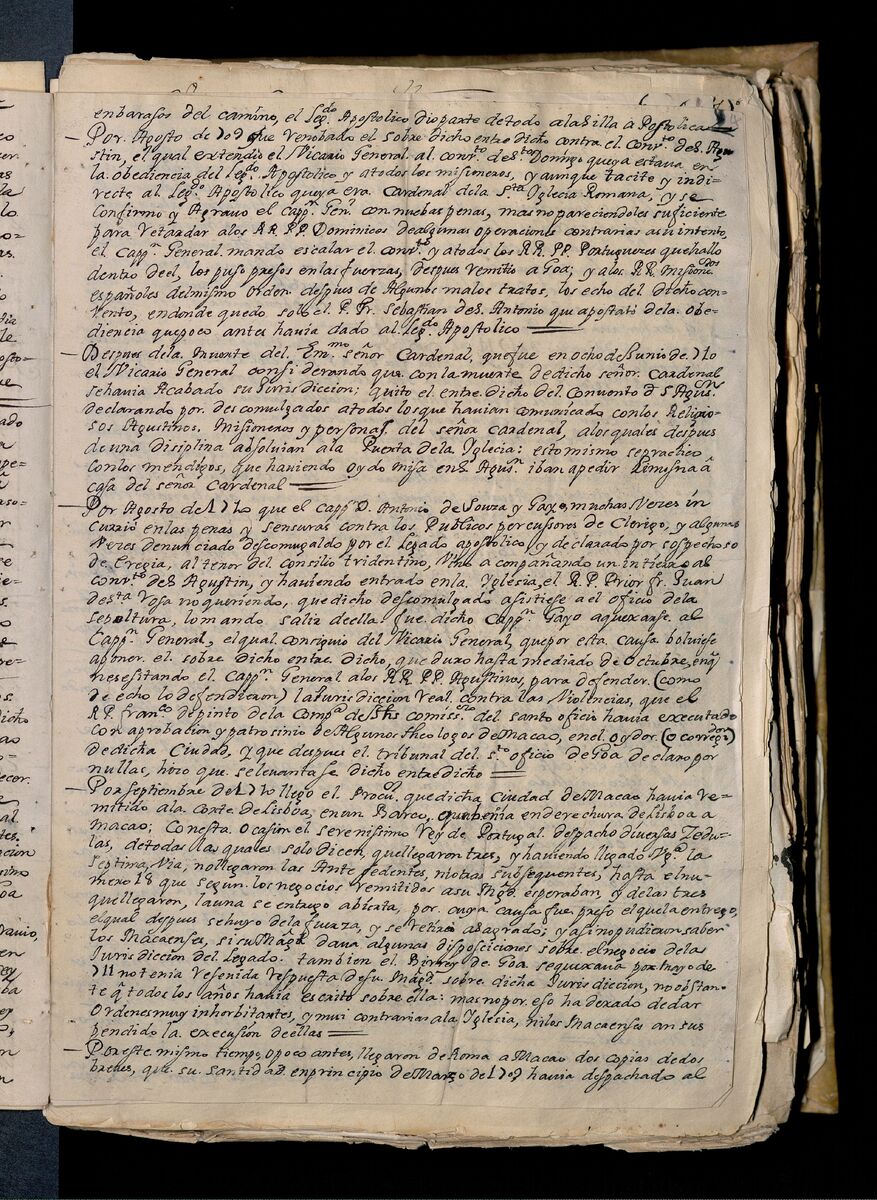 enbarasos del camino, el Leg.do Apostolico dio parte de todo a la Silla a Postolica
Por Agosto de 709 fue renobado el sobre dicho entre dicho contra el Conv.to de S. Agu
stin, el qual extendio el Vicario General al conv.to de S.to Domingo que ya estava en
la obediencia del Leg.do Apostolico y a todos los misioneros, y aunque tacite y indi-
recte al Leg.do Apostolico que ya era Cardenal de la S.ta Yglecia Romana, y se
confirmo y Agravo el capp.n Gen.l con nuebas penas, mas no pareciendoles suficiente
para retardar a los RR. PP. Dominicos de algunas operaciones contrarias a su intento
el Capp.n General mando escalar el conv.to y a todos los RR. PP. Portuguezes que hallo
dentro de el, los puso presos en las fuerzas, despues remitio a Goa; y a los RR. misione.ros
españoles del mismo Orden despues de Algunos malos tratos, los echo del dicho con-
vento, en donde quedo solo el P. Fr. Sebastian de S. Antonio que apostató de la obe-
diencia que poco antes havia dado al Leg.do Apostolico
Despues de la muerte del Em.mo señor Cardenal, que fue en ocho de Iunio de 710
el Vicario General considerando que con la muerte de dicho señor Cardenal
se havia Acabado su Iurisdiccion; quito el entre dicho del Convento d S Agus.n
declarando por descomulgados a todos los que havian comunicado con los Religio-
sos Agustinos, Misioneros y personas del señor Cardenal, a los quales despues
de una disiplina absolvian a la Puerta de la Yglecia: esto mismo se practico
con los mendigos, que haviendo oydo misa en S. Agus.n iban a pedir limusna â
casa del señor Cardenal
Por Agosto de 1710 que el capp.n D. Antonio de Souza y Gayo, muchas Vezes in
currio en las penas y sensuras contra los Publicos percusores de Clerigo, y algunas
Veces denunciado descomulgado por el Legado apostolico, y declarado por sospechoso
de Eregia, al tenor del Consilio tridentino, Vino aconpañando un intierro al
conv.to de S Agustin, y haviendo entrado en la Yglesia, el R. P. Prior fr. Juan
de S.ta Rosa no queriendo, que dicho descomulgado asistiese a el oficio de la
sepoltura, lo mando salir de ella. fue dicho Capp.n Gayo a quexarse al
Capp.n General, el qual consiguio del Vicario General, que por esta causa bolviese
aponer el sobre dicho entre dicho, que duro hasta mediado de Octubre, en q
nesesitando el Capp.n General a los RR. PP. Agustinos, para defender (como
de echo lo defendieron) la Iurisdiccion real contra las Violencias, que el
RP. fran.co de pinto de la Comp.a de Jhs comiss.rio del santo oficio havia executado
con aprobacion y patrosinio de Algunos theologos de Macao, en el oydor (o corregi.dor)
de dicha Ciudad, y que despues el tribunal del S.to oficio de Goa declaro por
nullas, hizo que se levantase dicho entredicho
Por septiembre de 1710 llego el Procu.r que dicha Ciudad de Macao havia re-
mitido a la corte de Lisboa, en un Barco, que benia en derechura de Lisboa a
Macao; Con esta ocasion el serenissimo Rey de Portugal despacho diversas Zedu-
las, de todas las quales solo dicen, que llegaron tres, y haviendo llegado la
septima Via, no llegaron las Ante sedentes, ni otras subsequentes, hasta el nu-
mero 18 que segun los negocios remitidos a su Mag.d esperaban, y de las tres
que llegaron, la una se entrego abierta, por cuya causa fue preso el que la entrego,
el qual despues se huyo de la fuerza, y se retiro a sagrado; y asi no pudieron saber
los Macaenses, si su Mag.d dava algunas disposiciones sobre el negocio de la
Iurisdiccion del Legado. tambien el Birrey de Goa se quexava por Mayo de
711 no tenia resevida respuesta de su Mag.d sobre dicha Iurisdiccion, no obstan-
te q todos los años havia escrito sobre ella: mas no por eso ha dexado de dar
Ordenes muy inhorbitantes, y mui contrarias a la Yglesia, ni los Macaenses an sus
pendido la execusion de ellas
Por este mismo tiempo, o poco antes, llegaron de Roma a Macao dos copias de dos
breves, que su santidad en principio de Março de 1709 havia despachado al